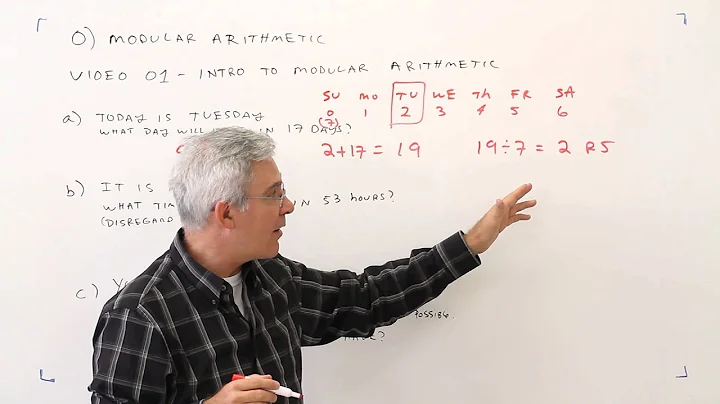 0) MODULAR ARITHMETIC
VIDEO 01 - INTRO TO MODULAR ARITHMETIC
SU MO TU WE Th FR SA
0 1 2 3 4 5 6
(7)
a) TODAY IS TUESDAY
WHAT DAY WILL IN 17 DAYS?
2+17 = 19 19÷7 = 2 R5
b) IT IS
WHAT IN 53 HOURS?
(DISREGARD
c)
POSSIBLE.